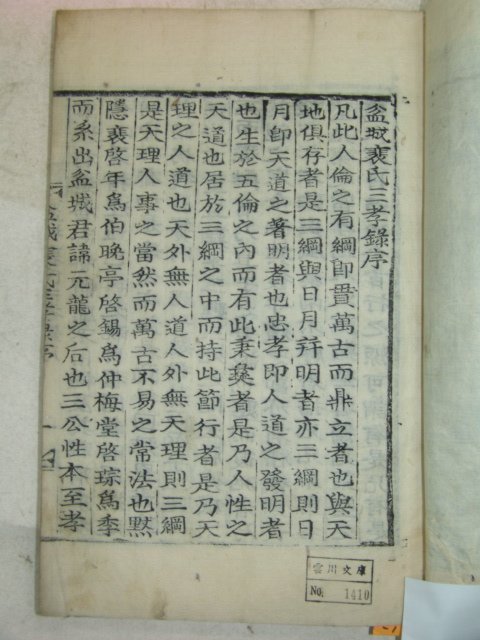 盆城裵氏三孝錄序
凡此人倫之有綱卽貫萬古而鼎立者也與天
地俱存者是三綱與日月幷明者亦三綱則日
月卽天道之著明者也忠孝卽人道之發明者
也生於五倫之內而有此秉彛者是乃人性之
天道也居於三綱之中而持此節行者是乃天
理之人道也天外無人道人外無天理則三綱
是天理人事之當然而萬古不易之常法也黙
隱裵啓年爲伯晚亭啓錫爲仲梅堂啓琮爲季
而系出盆城君諱元龍之后也三公性本至孝
雲川文庫
No. 1410